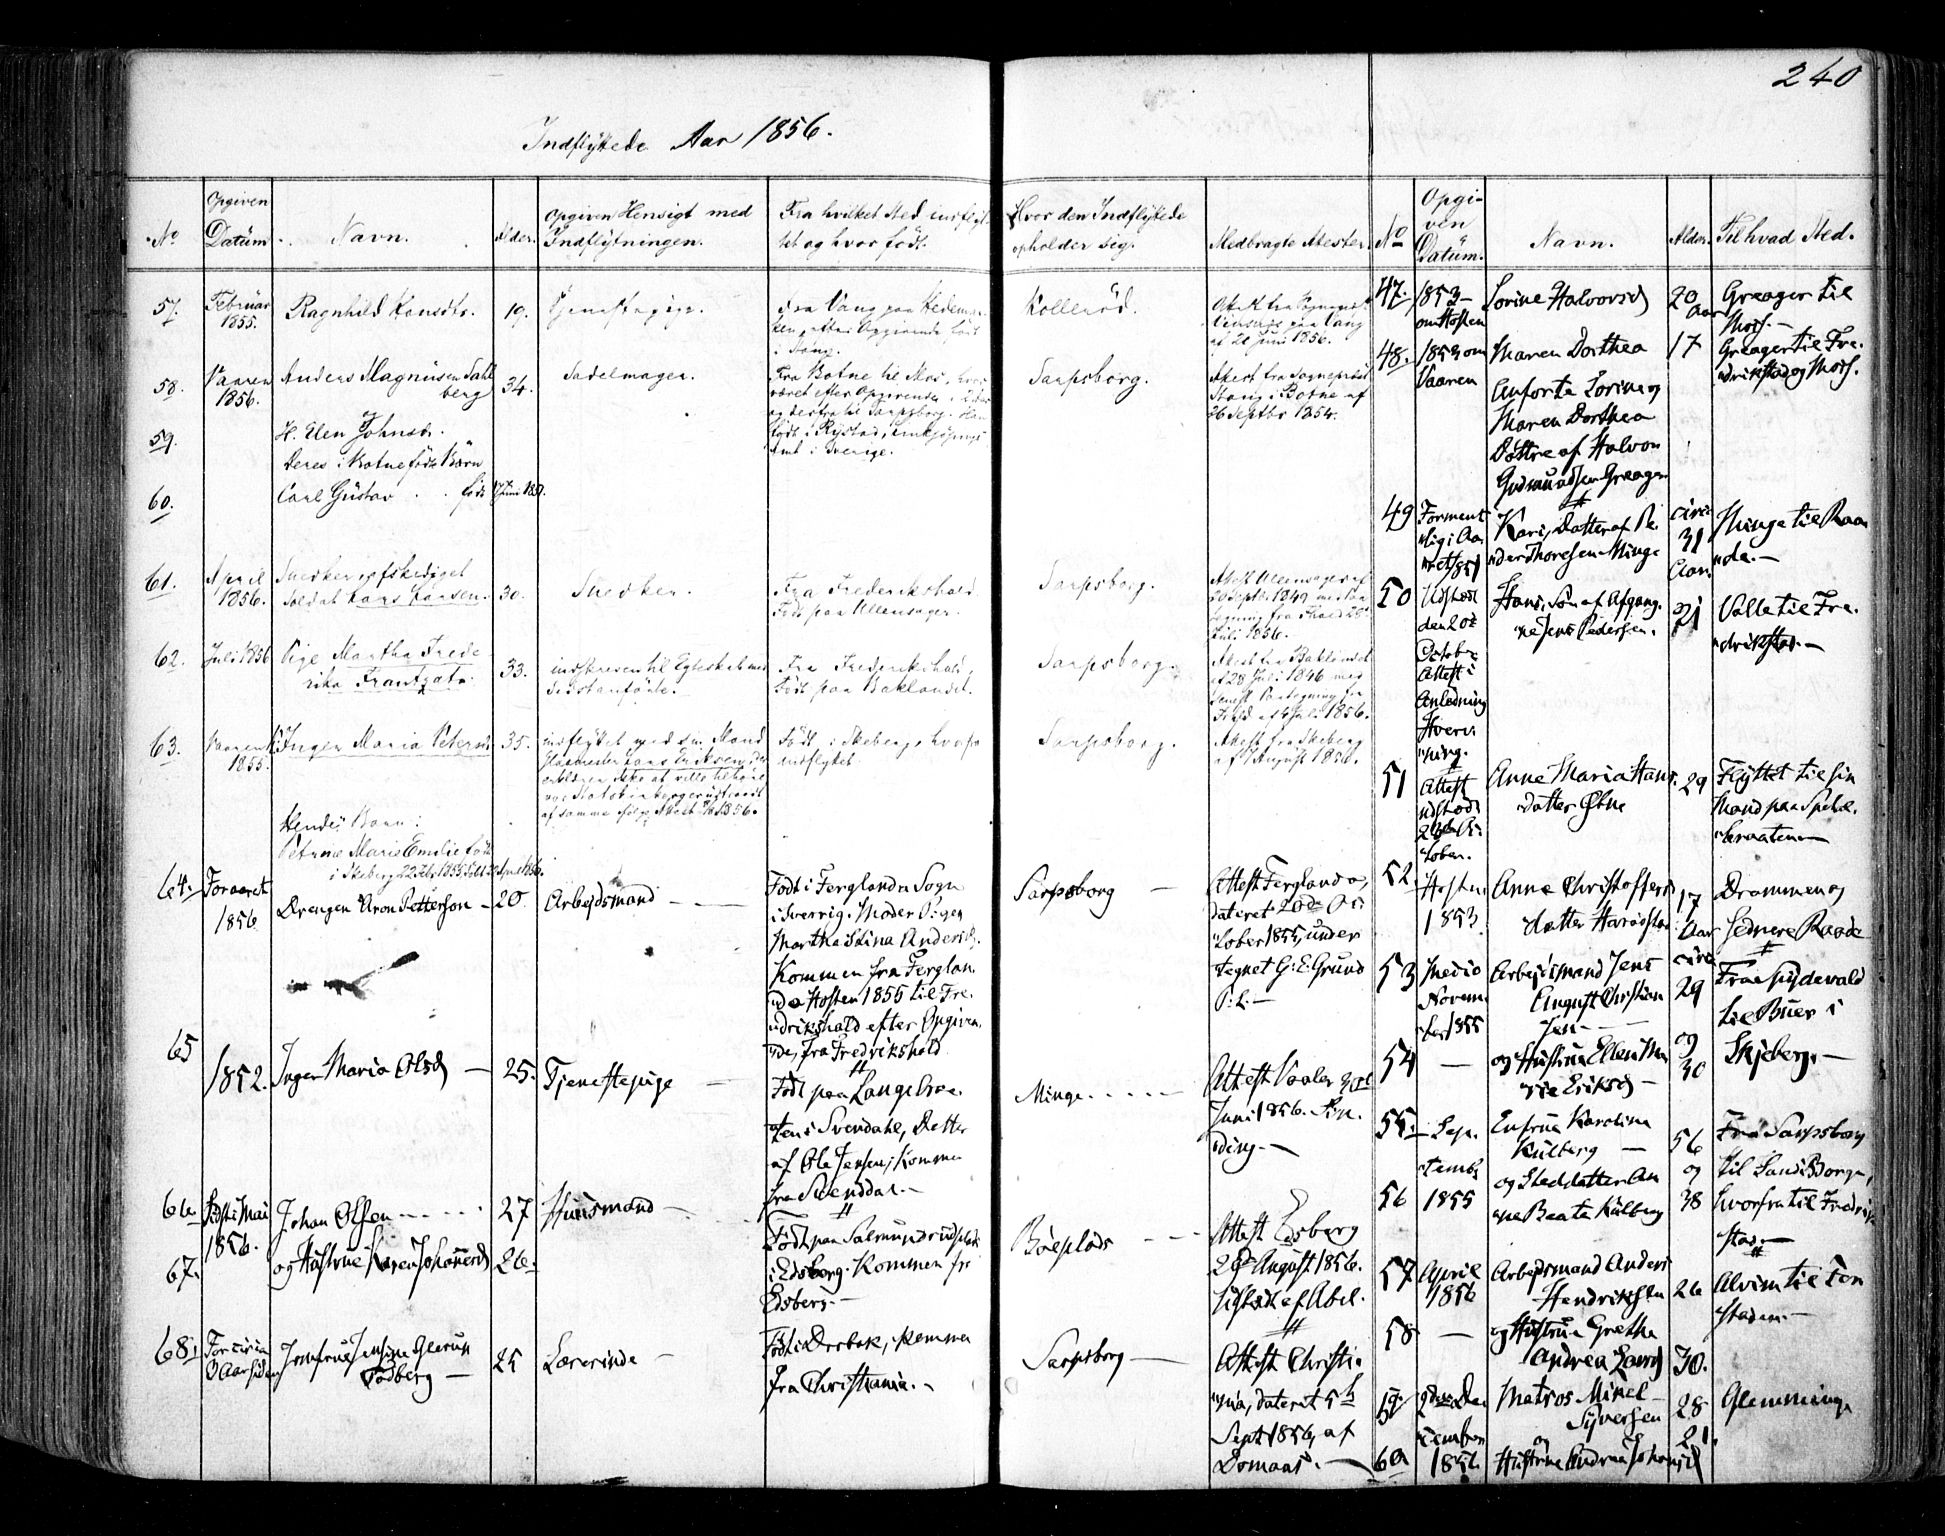 240
Indflyttede Aar 1856.
No
Opgiven
Datum.
Navn.
Alder.
Opgiven Hensigt med
Indflytningen.
Fra hvilket Sted indflyt-
tet og hvor født.
Hvor den Indflyttede
opholder sig.
Medbragte Attester.
57.
Februar
1855.
Ragnhild Hansdtr.
19.
Tjenestepige.
Fra Vang paa Hedemar-
ken, efter Opgivende født
i Vang.
Kollerød.
af 21 Juni 1856.
58.
Vaaren
1856.
Anders Magnusen Sahl
berg
34.
Sadelmager.
Fra Botne til Mos, hvor
været efter Opgivende
og derfra til Sarpsborg.
født i Rystad, Linkjøpings
Amt i Sverige.
Sarpsborg.
Attest fra Sognepræst
Stang i Botne af
26 Septbr 1854.
59.
H. Elen Johnsdr.
Deres i Botne fødte Børn
60.
Carl Gustav . . født Juni 1851.
61.
April
1856.
Snedker afskediget
Soldat Lars Larsen.
30.
Snedker.
Fra Frederikshald
Født paa Ullensager.
Sarpsborg.
Attest Ullensager af
20 Septbr 1849 med Paa
tegning fra Fhald 25
Juli 1856.
62.
Juli 1856
Pige Martha Frede
rika Frantzdtr.
33.
indskreven til Egteskab med
Fra Frederikshald,
født paa Baklandet.
Sarpsborg.
Attest fra Baklandet
af 28 Juli 1846 med
senest Paategning fra
Fhald af Juli 1856.
63.
Vaaren
1855.
Inger Maria Petersdr
35.
indflyttet med sin Mand
Lars Eriksen, der
erklærer ikke at ville tilhøre
Statskirken
Født i Skeberg, hvorfra
indflyttet.
Sarpsborg.
Attest fra Skeberg
af 1 August 1856.
Hendes Barn:
Petrine Marie Emilie født
i Skeberg 22 Feb. 1855
64.
Foraaret
1856
Drengen Aron Petterson
20.
Arbejdsmand
Født i Ferglanda Sogn
i Sverrig. Moder Pigen
Martha Stina Andersd.
Kommen fra Ferglan-
da Høsten 1855 til Fre-
drikshald efter Opgiven-
de, fra Fredrikshald
Sarpsborg
Attest Ferglanda,
dateret 20de Oc-
tober 1855, under
tegnet G: E. Grund
P: L.
65
1852.
Inger Maria Olsd
25.
Tjenestepige
Født paa Langebraa-
ten i Svendahl, Datter
af Ole Jensen; Kommen
fra Svenddal.
Minge
Attest Vaaler 30te
Juni 1856.
66
Sidst i Mai
1856.
Johan Olsen
27
Husmand
Født paa Salmundrudplads
i Edsberg. Kommen fr
Edsberg.
Böeplads
Attest Edsberg
29de August 1856.
67.
og Hustrue Karen Johannesd
26.
68.
For circa
Aar siden
Jomfrue Jensine Glerup
Fodberg
25
Lærerinde
Født i Drøbak, Kommen
fra Christiania.
Sarpsborg
Attest Christi-
ania, dateret 5te
Septb 1856, af
Domaas.
No
Opgi-
ven
Datum.
Navn.
Alder.
Til hvad Sted.
47.
1853
om Høsten
Lorine Halvorsd
20
Aar
Greager til
Moss.
48.
1853 om
Vaaren
Maren Dorthea
17
Greager til Fre-
drikstad og Moss.
Anførte Lorine og
Maren Dorthea
Døttre af Halvor
Gudmundsen Greager
49
Forment-
lig i Aa-
ret 1851
Kari, Datter af Pe-
der Thoresen Minge
circa
31
Aar.
Minge til Raa-
de.
50
Udstædt
den 20de
October
Attest i
Anledning
Hverv-
ning.
Hans, Søn af Afgang-
ne Jens Pedersen.
21
Valle til Fre-
drikstad.
51
Attest
udstædt
Oc-
tober.
Anne Maria Hans-
datter Øbne
29
Flyttet til sin
Mand paa Spetal-
kraaten
52.
Høsten
1853
Anne Christoffers
datter Haraldstad
17
Aar
Drammen og
sednere Raade
53
Medio
Novem-
ber 1855
Arbejdsmand Jens
August Christian
circa
29
Fra Spydevald
til Buer i
Skjeberg.
54
og Hustrue Ellen Ma-
rie Eriksd
og
30
55.
Sep-
temb
1855
Enfrue Karolina
Kulberg
56
Fra Sarpsborg
til Sand i Borge,
hvorfra til Fredrik-
stad.
56
og Steddatter An-
ne Beata Kulberg
og
38
57
April
1856
Arbejdsmand Anders
Hendriksen
26
Alvim til Fen-
staden.
58
og Hustrue Grethe
Andrea Larsd
30.
59.
2den De-
cember
1856.
Matros Mikel
Syversen
28
Glemminge
60.
og
Hustrue Andrea Johansd
21.